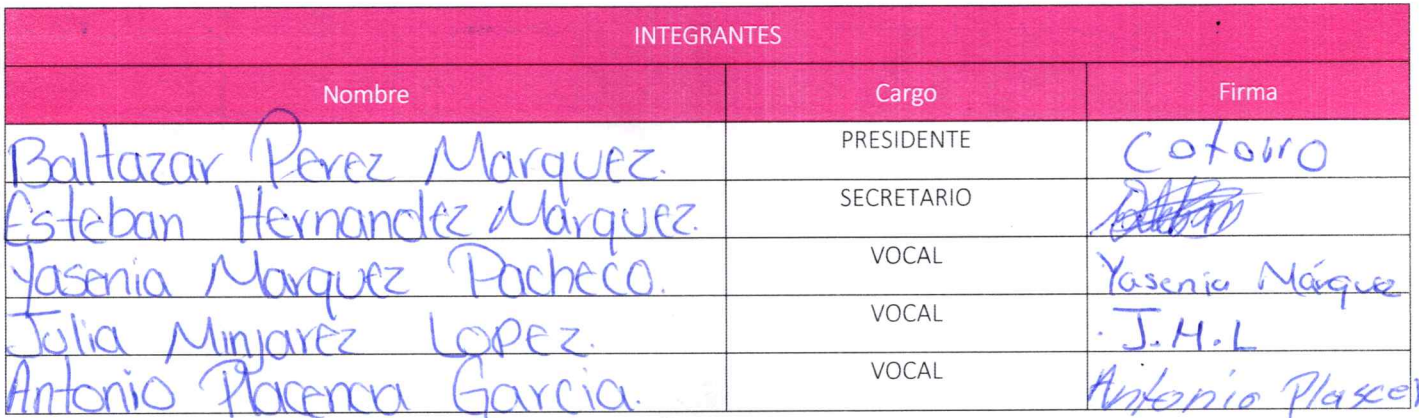 INTEGRANTES
Nombre Cargo Firma
Baltazar Perez Marquez. PRESIDENTE
Esteban Hernandez Marquez. SECRETARIO
Yasenia Marquez Pacheco. VOCAL Yasenia Márquez
Julia Minjarez Lopez. VOCAL J.H.L
Antonio Placencia Garcia. VOCAL Antonio Plascei